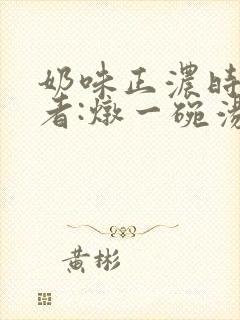 奶味正濃時
者:燉一碗湯
黃彬